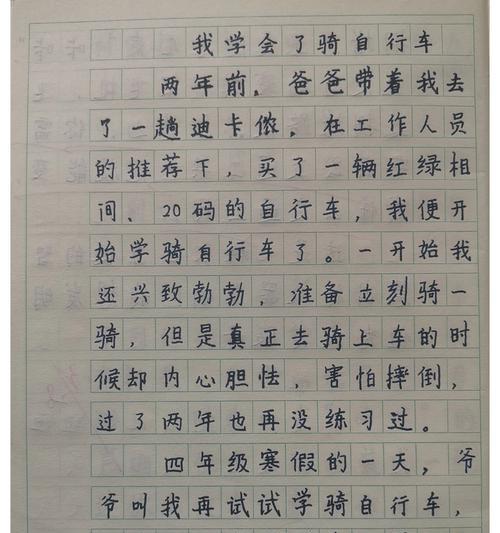 我学会了骑自行车
两年前，爸爸带着我去
了一趟迪卡侬，在工作人员
的推荐下，买了一辆红绿相
间、20码的自行车，我便开
始学骑自行车了。一开始我
还兴致勃勃，准备立刻骑一
骑，但是真正去骑上车的时
候却内心胆怯，害怕摔倒，
过了两年也再没练习过。
四年级寒假的一天，爷
爷叫我再试试学骑自行车，